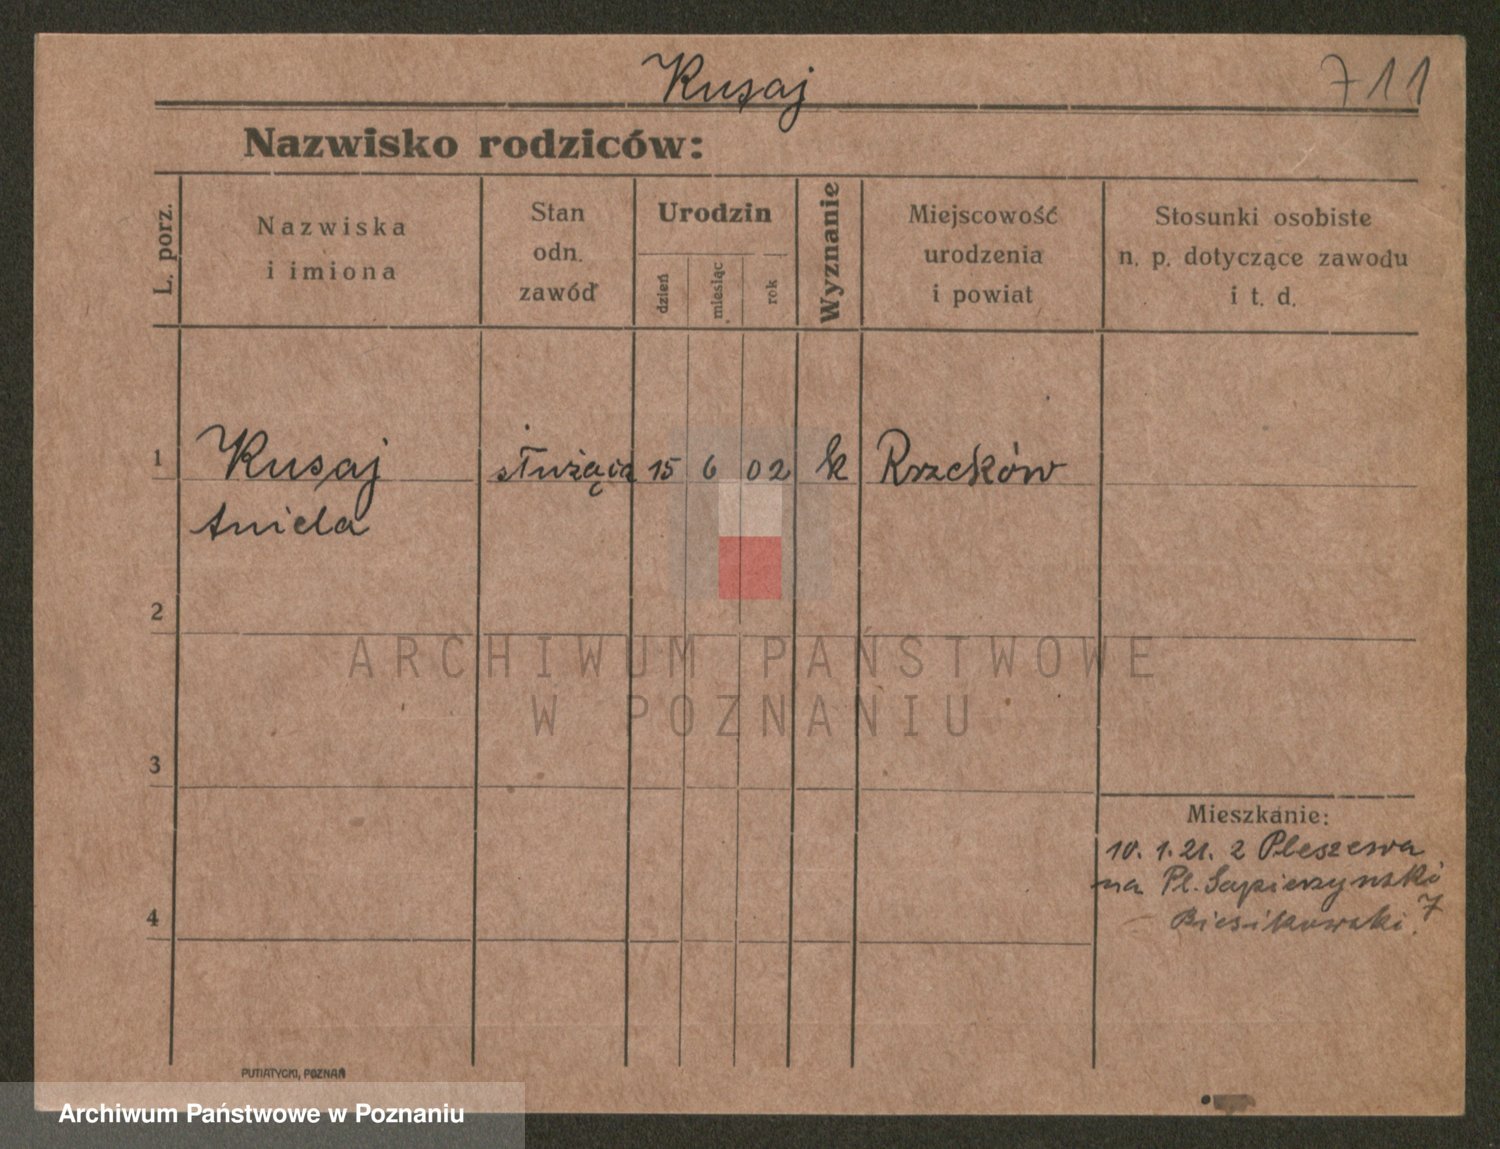 Kusaj
711
Nazwisko rodziców:
L. porz.
Nazwiska
i imiona
Stan
odn.
zawód
Urodzin
dzień
miesiąc
rok
Wyznanie
Miejscowość
urodzenia
i powiat
Stosunki osobiste
n. p. dotyczące zawodu
i t. d.
1 Kusaj służąca 15 6 02 k Rszeków
Aniela
2
ARCHIWUM PAŃSTWOWE
W POZNANIU
3
Mieszkanie:
10. 1. 21. z Pleszewa
na Pl. Sapierzyński 7
4
PUTIATYCKI, POZNAŃ
Archiwum Państwowe w Poznaniu